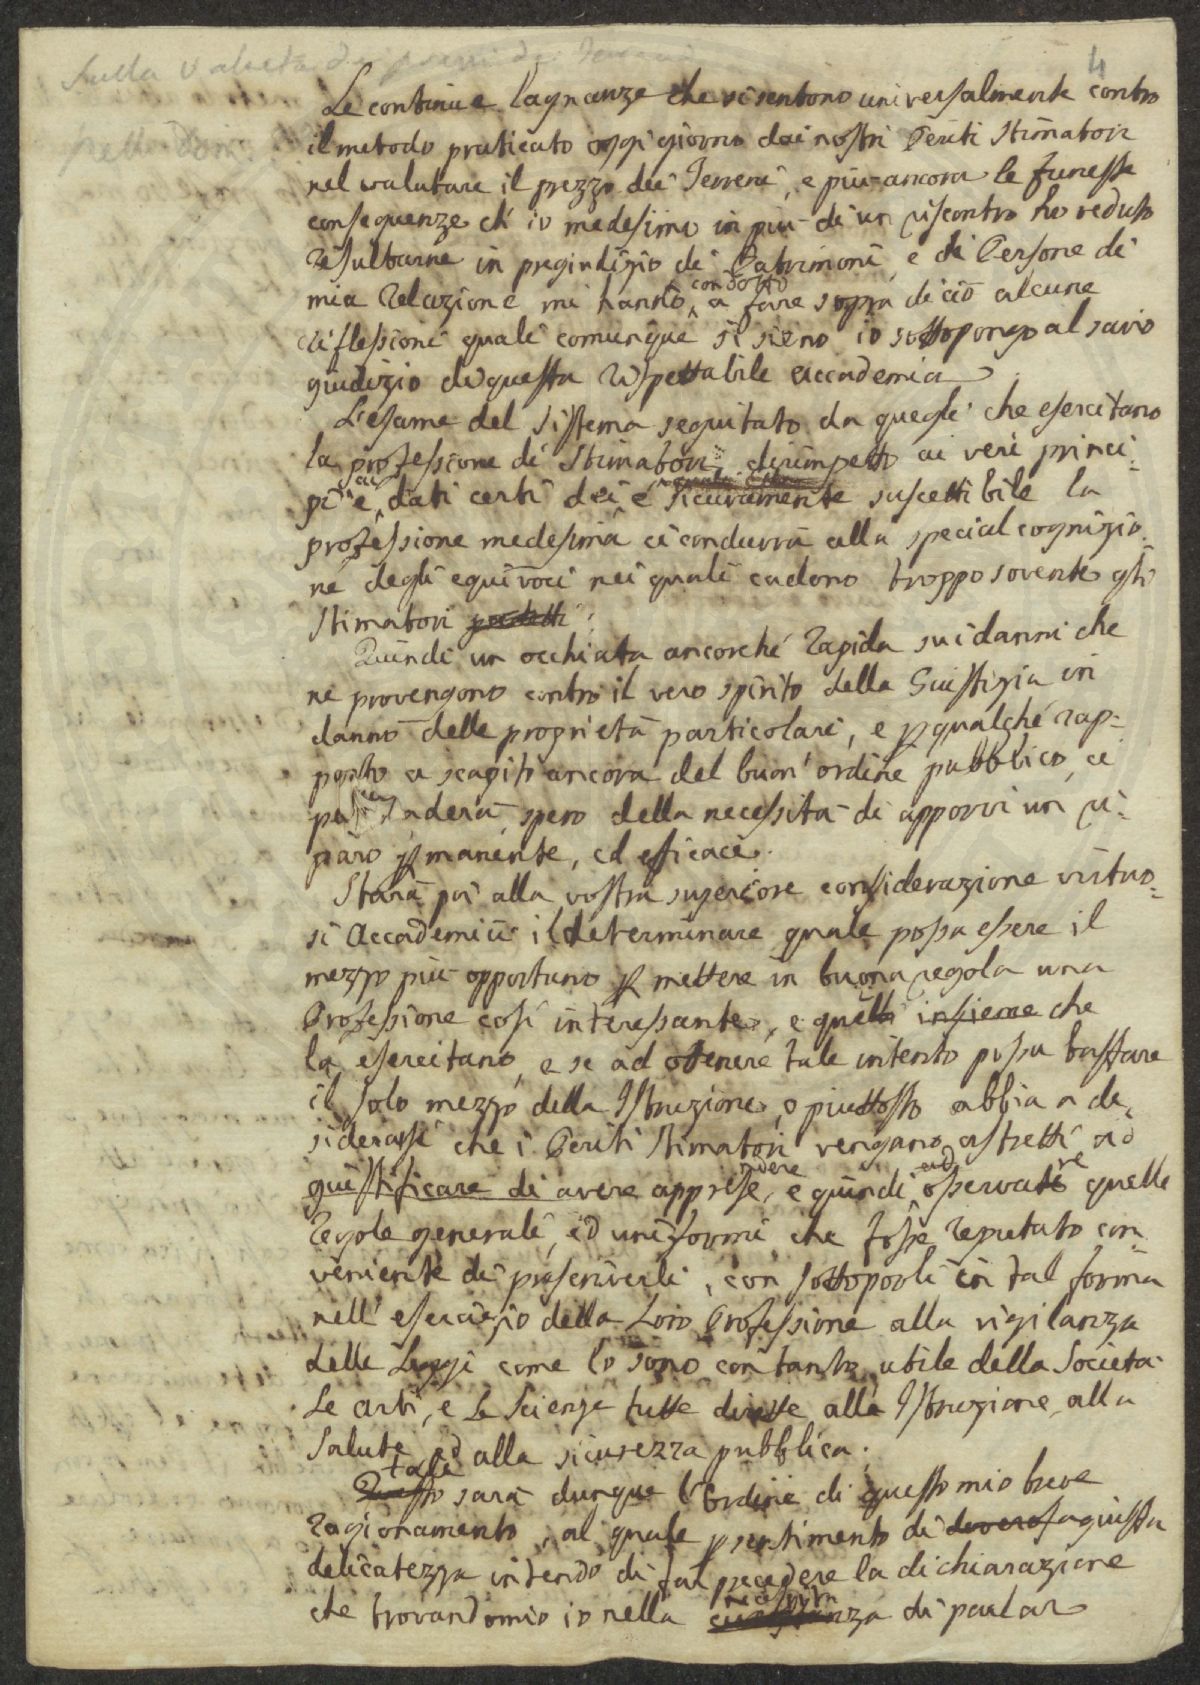 Sulla
4
Le continue lagnanze che si sentono universalmente contro
il metodo praticato oggi giorno dai nostri Periti Stimatori
nel valutare il prezzo dei Terreni, e più ancora le funeste
conseguenze ch' io medesimo in più di un riscontro ho veduto
resultarne in pregiudizio di Patrimoni, e di Persone di
condotto
mia relazione mi hanno a fare sopra di ciò alcune
riflessioni quali comunque si sieno io sottopongo al savio
giudizio di questa rispettabile Accademia.
L'esame del sistema seguitato da quegli che esercitano
la professione di Stimatori, dirimpetto ai veri princi:
ai
pi e dati certi dei è sicuramente suscettibile la
professione medesima ci condurrà alla special cognizio:
ne degli equivoci nei quali cadono troppo sovente gli
Stimatori predetti:
Quindi un occhiata ancorché rapida sui danni che
ne provengono contro il vero spirito della Giustizia in
danno delle proprietà particolari, e p qualche rap:
porto a scapito ancora del buon' ordine pubblico, ci
persuaderà spero della necessità di apporvi un ri:
paro pmanente, ed efficace.
Starà poi alla vostra superiore considerazione virtuo:
si Accademici il determinare quale possa essere il
mezzo più opportuno p mettere in buona regola una
Professione così interessante, e quelli insieme che
la esercitano, e se ad ottenere tale intento possa bastare
il solo mezzo della Istruzione, o piuttosto abbia a de:
siderarsi che i Periti Stimatori vengano astretti ad
ndere ad re
giustificare di avere apprese, e quindi osservate quelle
regole generali, ed uniformi che fosse reputato con
veniente di prescriverli, con sottoporli in tal forma
nell' esercizio della Loro Professione alla vigilanza
delle Leggi come lo sono con tanto utile della Società
Le Arti, e Le Scienze tutte dirette alla Istruzione, alla
Salute, ed alla sicurezza pubblica.
tale
Questo sarà dunque l'ordine di questo mio breve
ragionamento, al quale p sentimento di doverosa giusta
delicatezza intendo di far precedere la dichiarazione
necessità
che trovandomi io nella circostanza di parlar